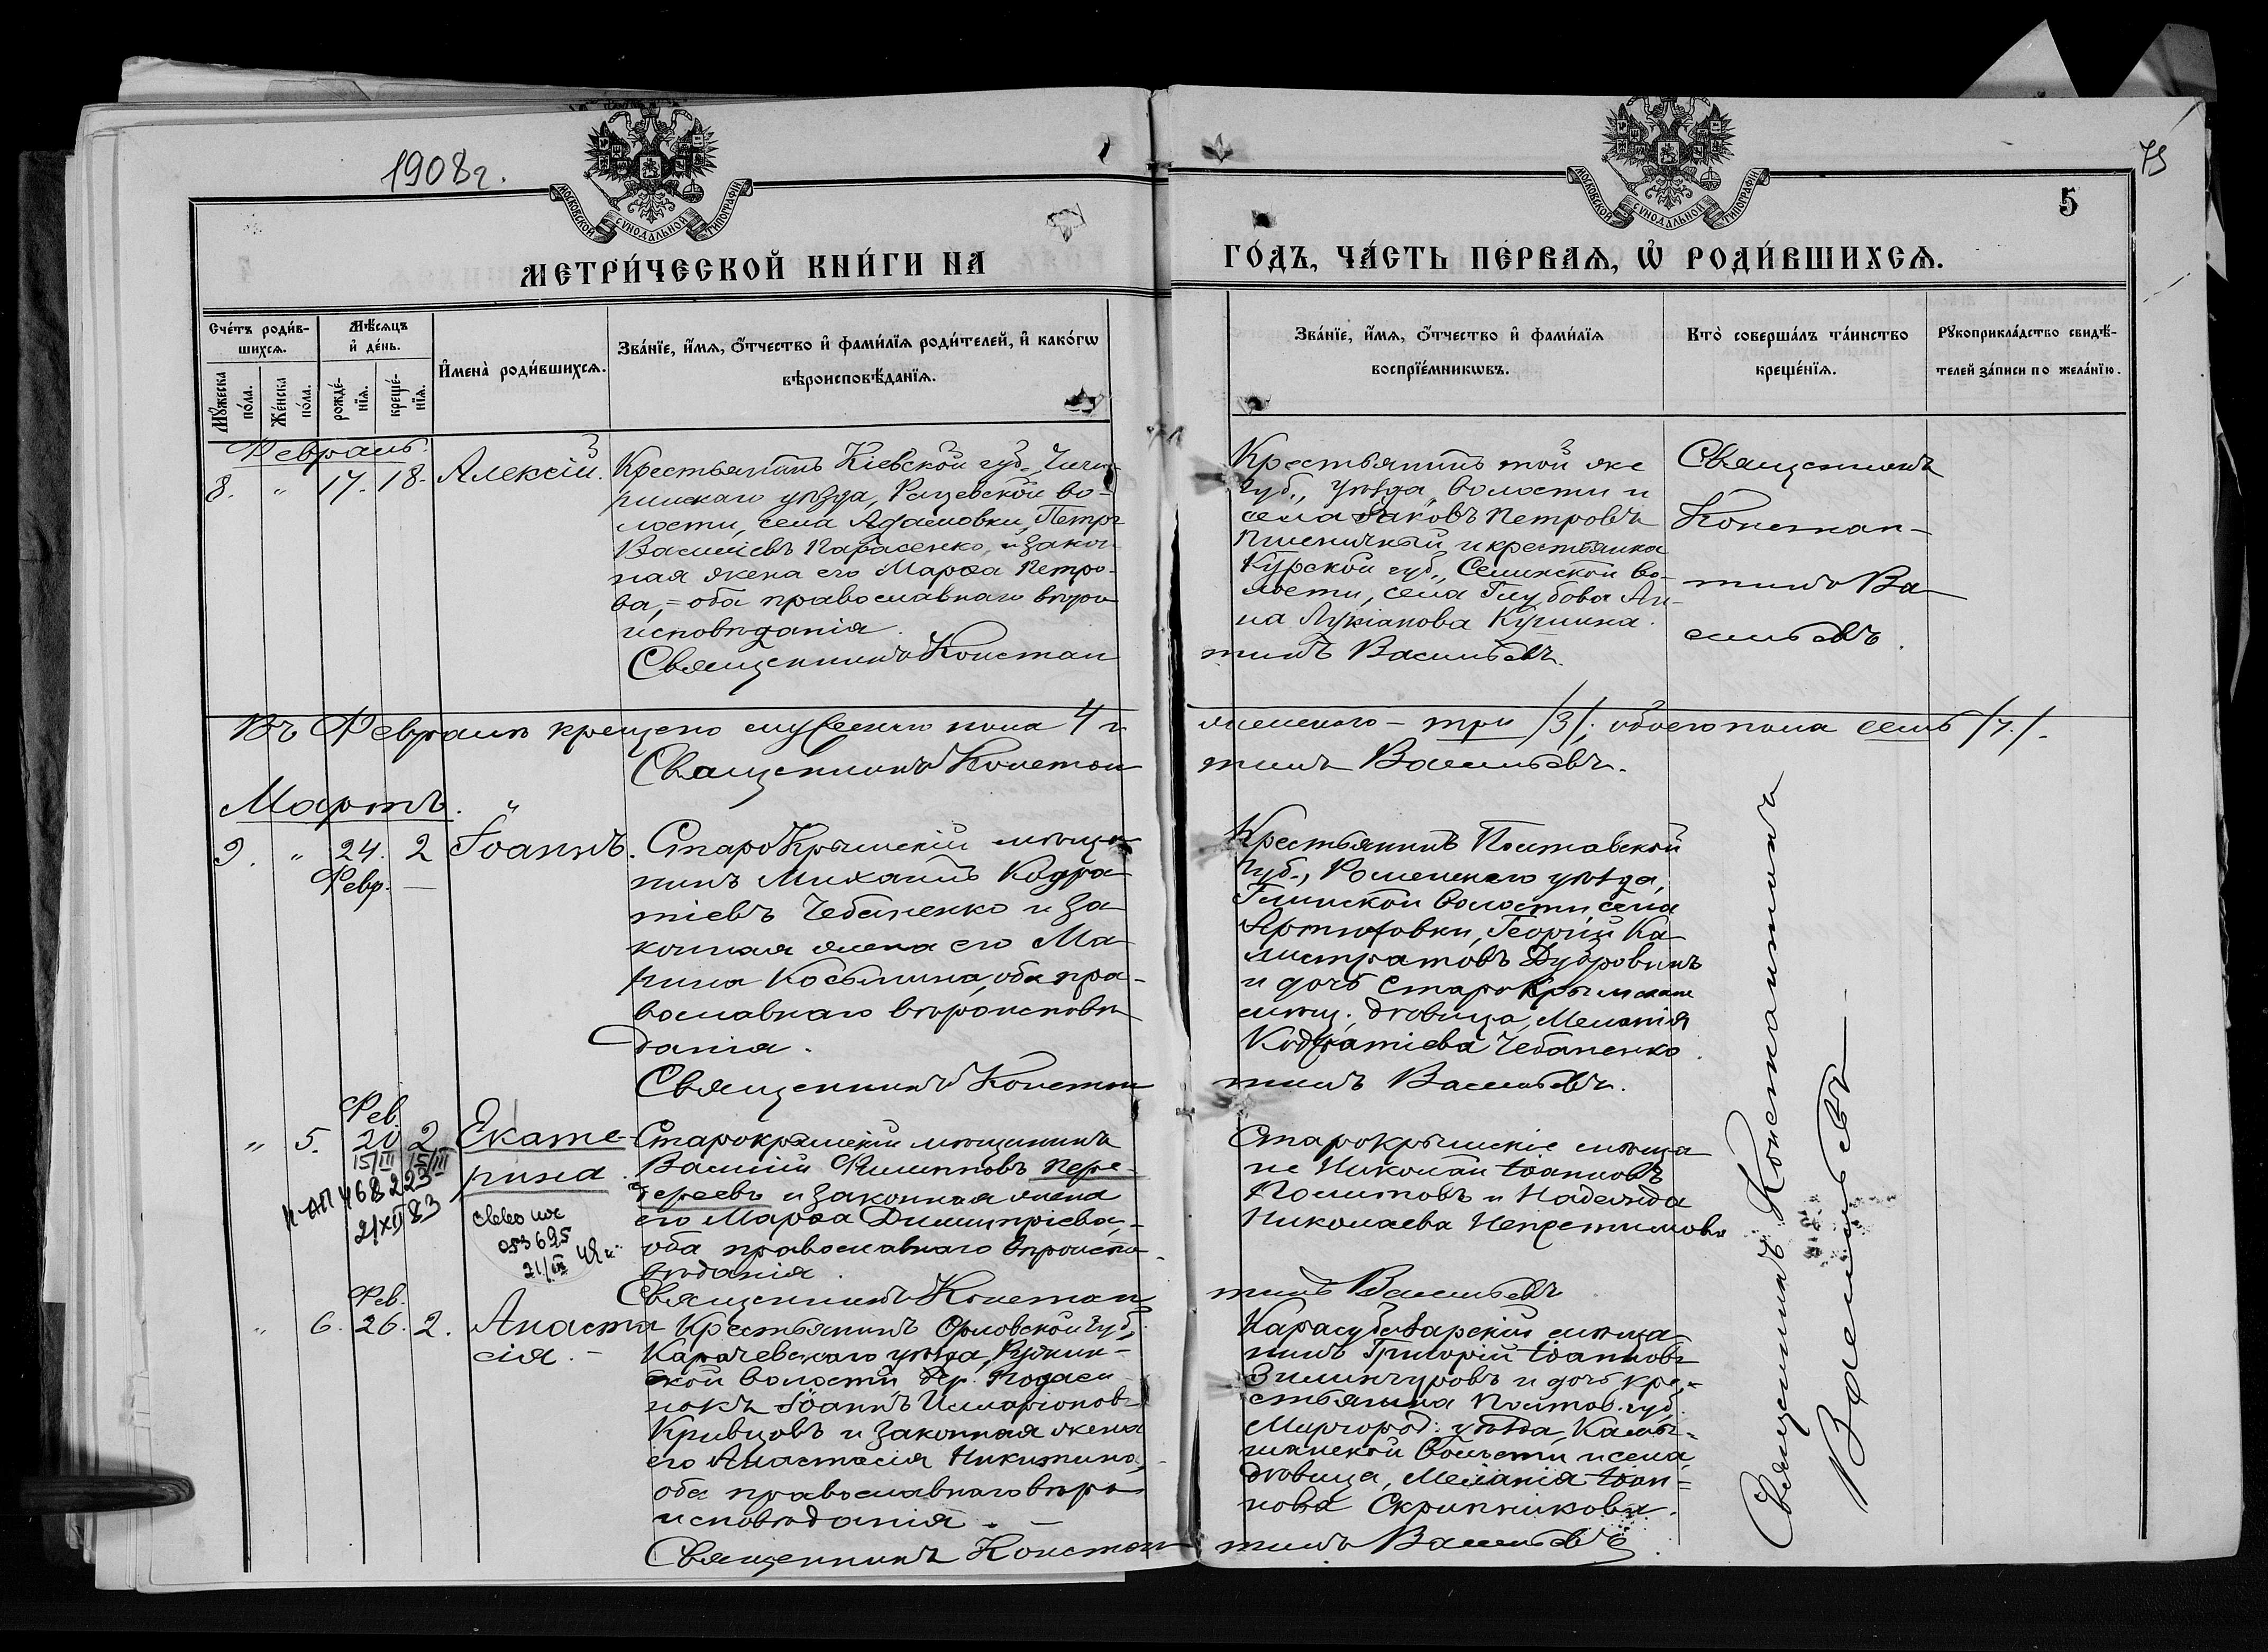 1908 г.
75
5
МОСКОВСКОЙ СѴНОДАЛЬНОЙ ТИПОГРАФІИ
МОСКОВСКОЙ СѴНОДАЛЬНОЙ ТИПОГРАФІИ
МЕТРИ́ЧЕСКОЙ КНИ́ГИ НА
ГО́ДЪ, ЧА́СТЬ ПЕ́РВАѦ, Ѡ҆ РОДИ́ВШИХСѦ.
Сче́тъ роди́в-
шихсѧ.
Мꙋ́жеска по́ла.
Же́нска по́ла.
Мѣ́сѧцъ и҆ де́нь.
рожде́-нїѧ.
креще́-нїѧ.
И҆мена̀ роди́вшихсѧ.
Зва́нїе, и҆́мѧ, ѻ҆́тчество и҆ фами́лїѧ роди́телей, и҆ како́гѡ
вѣроисповѣ́данїѧ.
Зва́нїе, и҆́мѧ, ѻ҆́тчество и҆ фами́лїѧ
воспрїе́мникѡвъ.
Кто̀ соверша́лъ та́инство
креще́нїѧ.
Рꙋкоприкла́дство свидѣ́-
телей за́писи по жела́нїю.
Февраль.
8. " 17. 18. Алексій.
Крестьянинъ Кіевской губ., Чиги-
ринскаго уѣзда, Рацевской во-
лости, села Адамовки, Петръ
Василіевъ Парасенко, и закон-
ная жена его Марѳа Петро-
ва, = оба православнаго вѣро
исповѣданія.
Священникъ Констан
Крестьянинъ той же
губ., уѣзда, волости и
села Іаковъ Петровъ
Пшеничный и крестьянка
Курской губ., волости, села
на Лукіанова
тинъ Васильевъ.
Священникъ
Констан-
тинъ Ва-
сильевъ.
Въ Февралѣ крещено мужескаго пола 4 и
женского – три /3/; обоего пола семь /7/.
Священникъ Констан
тинъ Васильевъ.
Мартъ.
9. " 24. 2 Іоаннъ.
Февр. —
СтароКрымскій мѣща
нинъ Михаилъ Кодра
тіевъ Чебаненко и за
конная жена его Ма
рина Косьмина, оба пра-
вославнаго вѣроисповѣ
данія.
Священникъ Констан
Крестьянинъ Полтавской
губ., Роменскаго уѣзда,
Глинской волости, села
Артюховки, Георгій Ка
листратовъ Дубровинъ
и дочь СтароКрымскаго
мѣщ. дѣвица, Меланія
Кодратіева Чебаненко.
тинъ Васильевъ.
Фев.
" 5. 20 2 Екате-
рина
15/III 15/III
II-АП 468223
21/XII 83
053625
21/IX
Старокрымскій мѣщанинъ
Василій Филипповъ Пере-
дереевъ и законная жена
его Марѳа Димитріева, –
оба православнаго вѣроиспо-
вѣданія.
Священникъ Констан
Старокрымскіе мѣща
не Николай Іоанновъ
и Надежда
Николаева
тинъ Васильевъ
Фев.
" 6. 26. 2. Анаста
сія. –
Крестьянинъ Орловской губ.,
Карачевскаго уѣзда,
ской волости дер.
Іоаннъ Илларіоновъ
Кривцовъ и законная жена
его Анастасія Никитина,
оба православнаго вѣро
исповѣданія. –
Священникъ Констан
Карасубазарскій мѣща
нинъ Григорій Іоанновъ
и дочь кре-
стьянина Полтав. губ.
Миргород. уѣзда, Камы-
шанской волости и села
дѣвица, Меланія Іоан-
нова Скрипникова.
тинъ Васильевъ
Священникъ Константинъ
Васильевъ